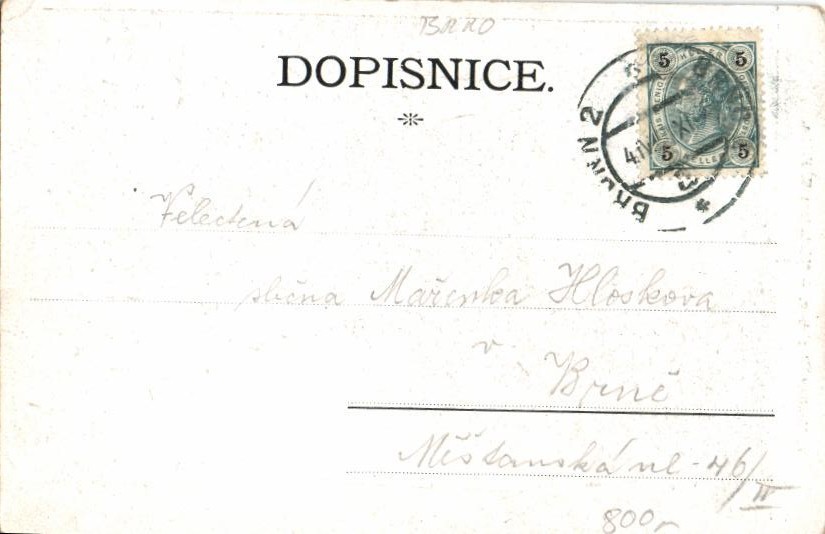 BRNO
DOPISNICE.
5 5
5 5
HELLER
BRÜNN 2
Velectená
slečna Mařenka Hloskova
v
Brně
Měšťanská ul - 46/II
800,-